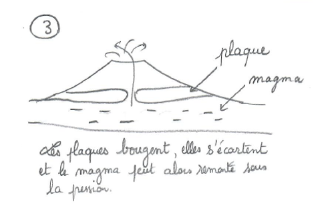 3
plaque
magma
Les plaques bougent, elles s'écartent
et le magma peut alors remonte sous
la pression.